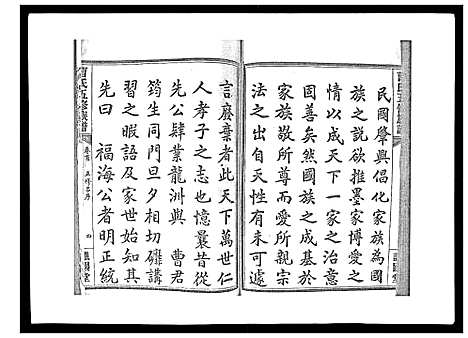 民國肇興倡化家族為國
族之說欲推墨家博愛之
情以成天下一家之治意
固善矣然國族之成基於
家族所尊而愛所親宗
法之出自天性有未可遽
言廢棄者此天下萬世仁
人孝子之志也憶曩昔從
先公肄業龍洲與 曹君
筠生同門旦夕相切礳講
習之暇語及家世始知其
先曰 福海公者明正統
曹氏五修族譜
卷首 五修序
四